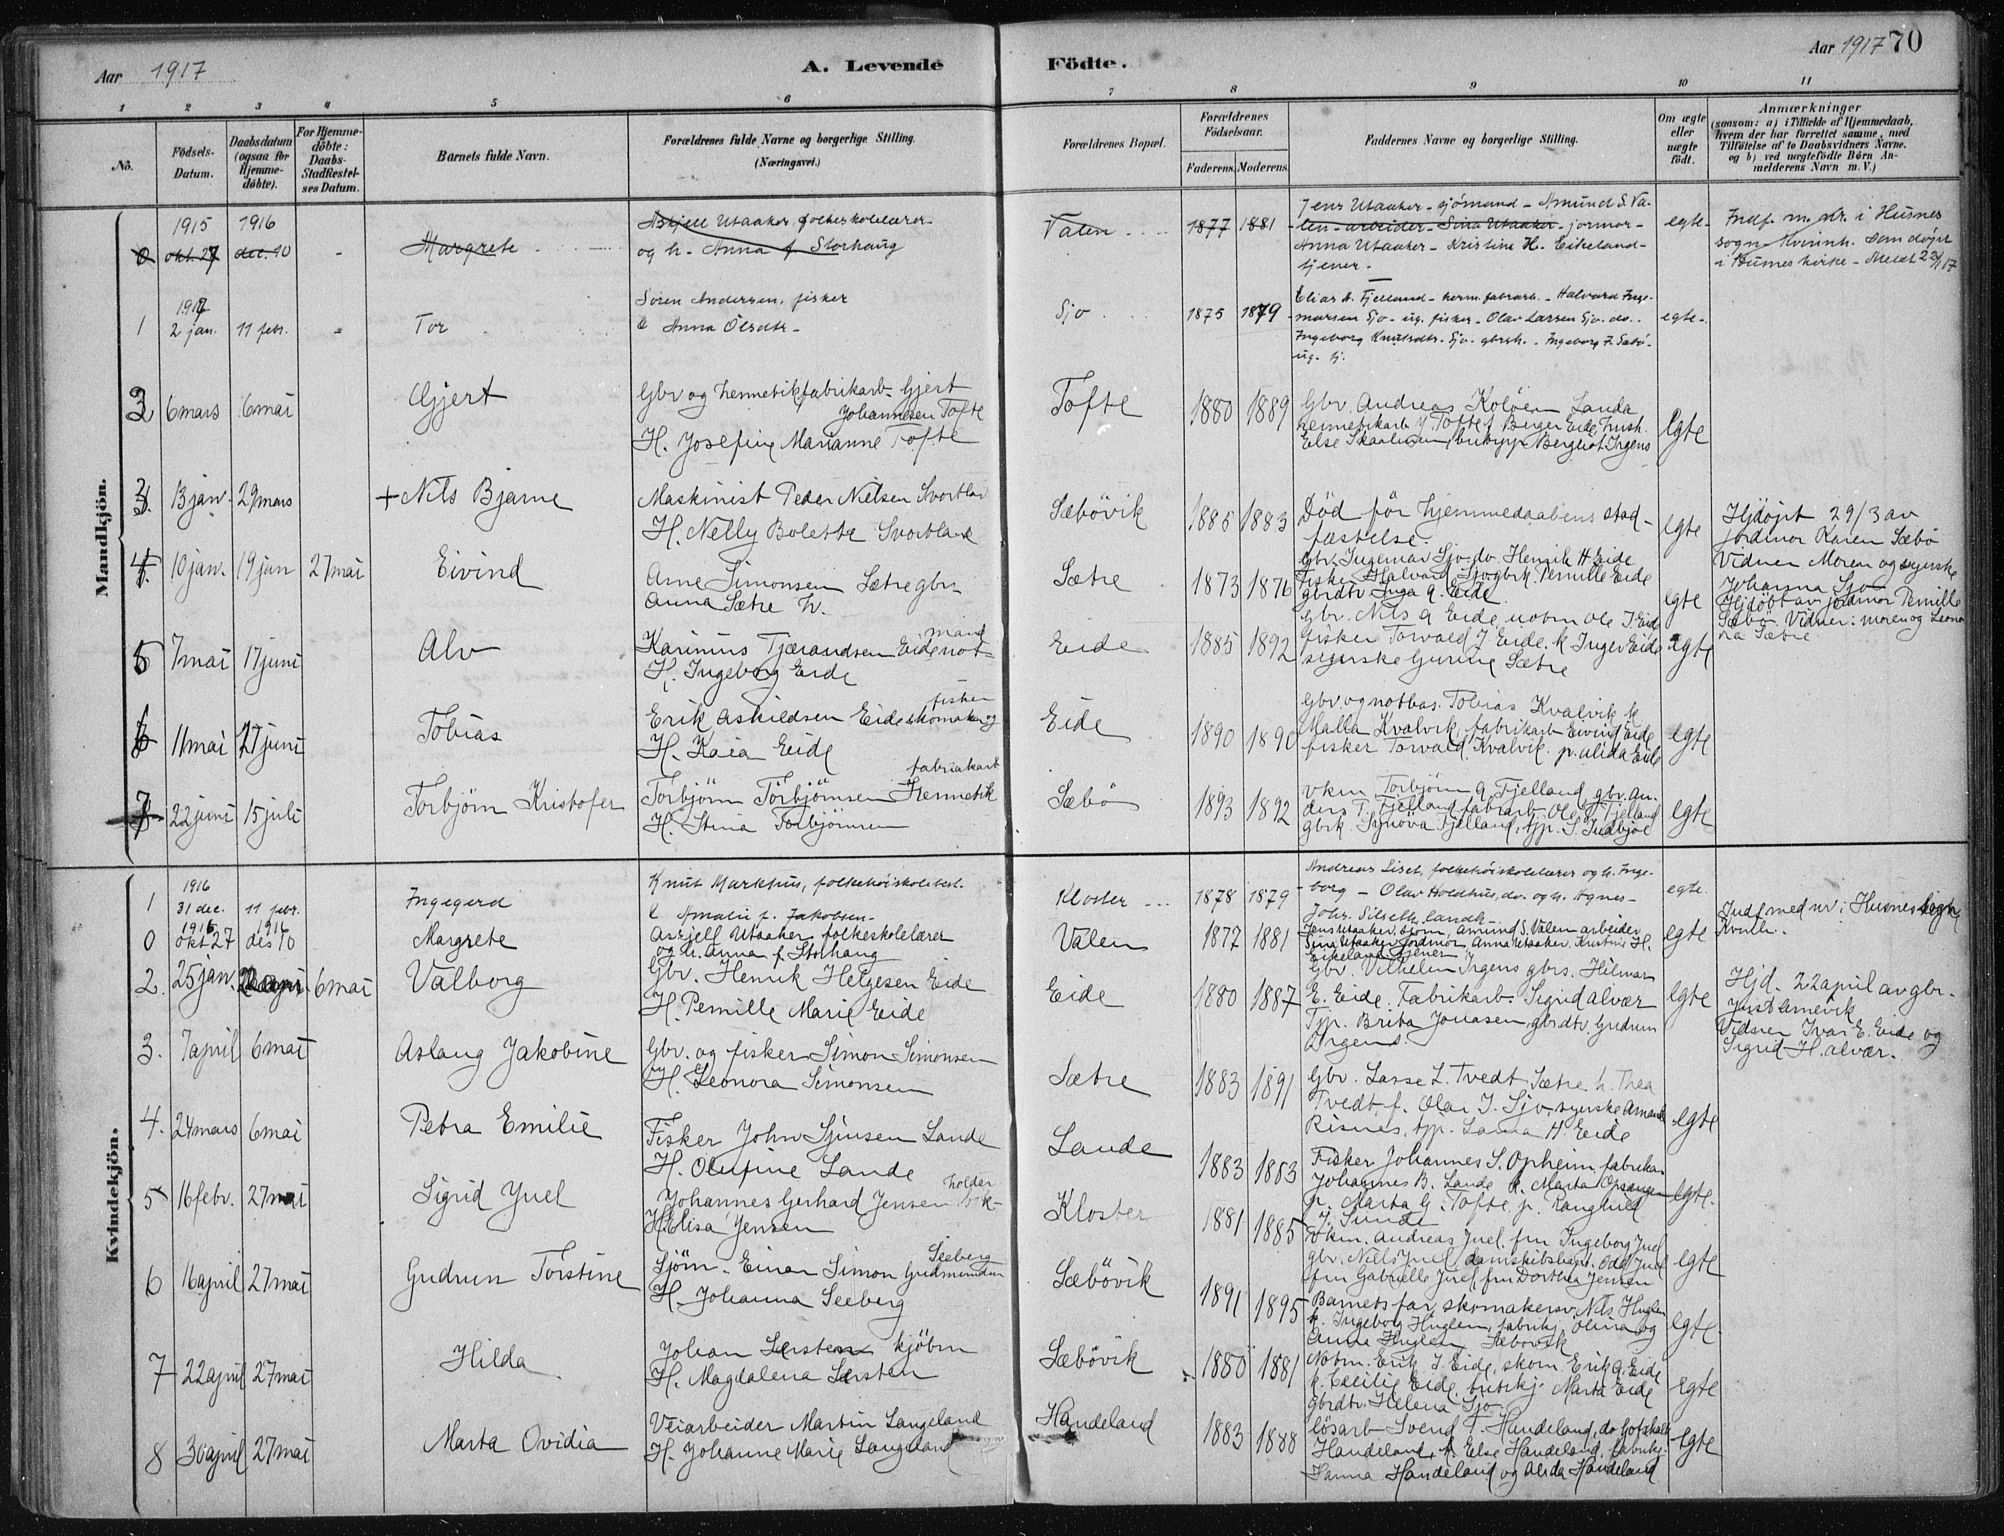 Aar 1917
A. Levende
Födte.
Aar 1917
70
1 2 3 4 5 6 7 8 9 10 11
No.
Födsels-
Datum.
Daabsdatum
(ogsaa for
Hjemme-
döbte).
For Hjemme-
döbte:
Daabs-
Stadfestel-
ses Datum.
Barnets fulde Navn.
Forældrenes fulde Navne og borgerlige Stilling.
(Næringsvei.)
Forældrenes Bopæl.
Forældrenes
Födselsaar.
Faderens. Moderens.
Faddernes Navne og borgerlige Stilling.
Om ægte
eller
uægte
födt.
Anmærkninger
(saasom: a) i Tilfælde af Hjemmedaab,
hvem der har forrettet samme, med
Tilföielse af to Daabsvidners Navne,
og b) ved uægtefödte Börn An-
melderens Navn m. V.)
Mandkjön.
1915 1916
0 okt. 27 dec. 10 - Margrete
Askjell Utaaker, folkeskolelærer
og h. Anna f. Storhaug
Valen 1877 1881
Jens Utaaker - sjömand - Amund S. Va-
len - arbeider - Sina Utaaker - jormor -
Anna Utaaker - Kristine H. Eikeland -
tjener -
egte
Indf. m. nr. i Husnes
sogn Kvinnh. som döpt
i Husnes kirke - Meldt 23/1 17
1917
1 2 jan. 11 febr. - Tor
Sören Andersen, fisker
& Anna Olsdtr -
Sjo 1875 1879
Elias A. Fjelland - herm. fabrarb. - Halvard Inge-
marsen Sjo - ug. fisker - Olav Larsen Sjo - do..
Ingeborg Knutsdtr. Sjo - gbrsh. - Ingeborg F. Sæbö -
ug. tj.
egte -
2 6 mars 6 mai Gjert
Gbr og hermetikfabrikarb. Gjert
Johannesen Tofte
H. Josefine Marianne Tofte
Tofte 1880 1889
Gbr. Andreas Kolöen Landa
hermetikarb J. Tofte f. Birger Eide, hush.
Else Skaalnen, butikpp Bergliot Irgens
Egte
3. 13 jan. 29 mars + Nils Bjarne
Maskinist Peder Nielsen Svortland
H. Nelly Bolette Svortland
Sæbövik 1885 1883
Död för hjemmedaabens stad-
fæstelse.
egte
Hjdöpt 29/3 av
jordmor Karen Sæbö
Vidner Moren og syerske
Johanna Sjo
4. 10 jan. 19 jan 27 mai Eivind
Arne Simonsen Sætre gbr.
Anna Sætre h.
Sætre 1873 1876
Gbr. Ingemar Sjo do Henrik H. Eide
Fisker Halvard Sjo gbrk. Pernille Eide
gbrdtr Inga A. Eide
egte
Hjdöbt av jordmor Pernille
Sæbö. Vidner: moren og Leono
ra Sætre
5 7 mai 17 juni Alv
Karinius Tjærandsen Eide not-
mand
H. Ingeborg Eide
Eide 1885 1892
Gbr. Nils A Eide, notm Ole J. Eide
fisker Torvald J. Eide. k Inger Eide
syerske Gurine Sætre
egte
6 11 mai 27 juni Tobias
fisker
Erik Askildsen Eide skomaker og
H. Kaia Eide
Eide 1890 1890
Gbr. og notbas. Tobias Kvalvik k
Malla Kvalvik, fabrikarb Eivind Eide
fisker Torvald Kvalvik. p. Alida Eide
egte
7 22 juni 15 juli Torbjörn Kristofer
fabrikarb
Torbjörn Torbjörnsen Hermetik
H. Stina Torbjörnsen
Sæbö 1893 1892
Vkm. Torbjörn A. Fjelland gbr. An-
ders T. Fjelland fabrarb. Ole T. Fjelland
gbrk. Synöva Fjelland, tjp. S. Indbjoe
egte
Kvindekjön.
1916
1 31 dec. 11 febr. Ingegerd
Knut Markhus, folkehöiskolebest.
& Amalie f. Jakobsen -
Kloster 1878 1879
Andreas Liset, folkehöiskolelærer og h. Inge-
borg - Olav Holdhus, do. og h. Agnes -
Johs. Silseth, landh. -
egte.
1915 1916
0 okt 27 des 10 Margrete
Askjell Utaaker folkeskolelærer
og h. Anna f. Storhaug
Valen 1877 1881
Jens Utaaker, sjöm, Amund S. Valen arbeider
Sina Utaaker jordmor, Anna Utaaker, Kristine H.
Eikeland tjener
egte
Indf med nr. i Husnes sogn
Kvinh.
2. 25 jan. 22 april 6 mai Valborg
Gbr. Henrik Helgesen Eide
H. Pernille Marie Eide
Eide 1880 1887
Gbr. Vilhelm Irgens gbrs. Hilmar
E. Eide. Fabrikarb. Sigrid Alvær
Tjp. Brita Jonasen, gbrdtr. Gudrun
Irgens
egte
Hjd. 22 april av gbr.
Just Arnevik
Vidner Ivar E. Eide og
Sigrid H. Alvær.
3. 7 april 6 mai Aslaug Jakobine
Gbr. og fisker Simon Simonsen
H. Leonora Simonsen
Sætre 1883 1891
Gbr. Lasse L. Tvedt Sætre h. Thea
Tvedt, f. Olai J. Sjo, syerske Amanda
Risnes, tjp. Lanna H. Eide
egte
4. 24 mars 6 mai Petra Emilie
Fisker John Sjursen Lande
H. Olufine Lande
Lande 1883 1883
Fisker Johannes S. Opheim, fabrika.
Johannes B. Lande k. Marta Opsangen
p. Marta G. Tofte, p. Ranghild
J. Sunde
egte.
5 16 febr. 27 mai Sigrid Juel
holder
Johannes Gerhard Jensen bok-
H Elisa Jensen
Kloster 1881 1885
Vkm. Andreas Juel. frn Ingeborg Juel
gbr. Niels Juel, damskibsexp. Odd Juel
frn Gabrielle Juel, frn Dorthea Jensen
egte
6 16 april 27 mai Gudrun Torstine
Seeberg
Sjöm. Einar Simon Gudmundsen
H. Johanna Seeberg
Sæbövik 1891 1895
Barnets far, skomakersv. Nils Huglen
k. Ingeborg Huglen, fabrikj. Olina og
Anna Huglen Sæbövik
egte
7 22 april 27 mai Hilda
Johan Lersten kjöbm
H. Magdalena Lersten
Sæbövik 1880 1881
Notm. Erik I. Eide, skom Erik A. Eide
k. Cecilie Eide, butikj. Marta Eide
gbrdtr. Helena Sjo
egte
8 30 april 27 mai Marta Ovidia
Veiarbeider Martin Langeland
H. Johanne Marie Langeland
Handeland 1883 1888
lösarb Svend T. Handeland, do Gotskalk
Handeland, k. Else Handeland, fabrikj.
Hanna Handeland og Alida Handeland
egte